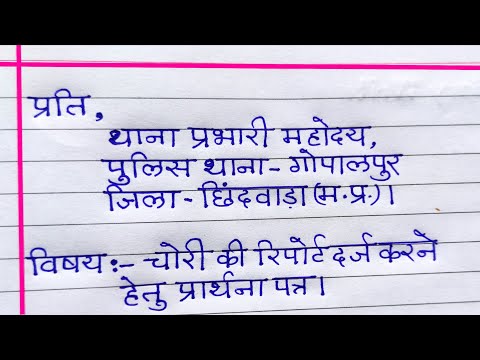 प्रति,
थाना प्रभारी महोदय,
पुलिस थाना- गोपालपुर
जिला- छिंदवाड़ा (म.प्र.)।
विषय:- चोरी की रिपोर्ट दर्ज करने
हेतु प्रार्थना पत्र।